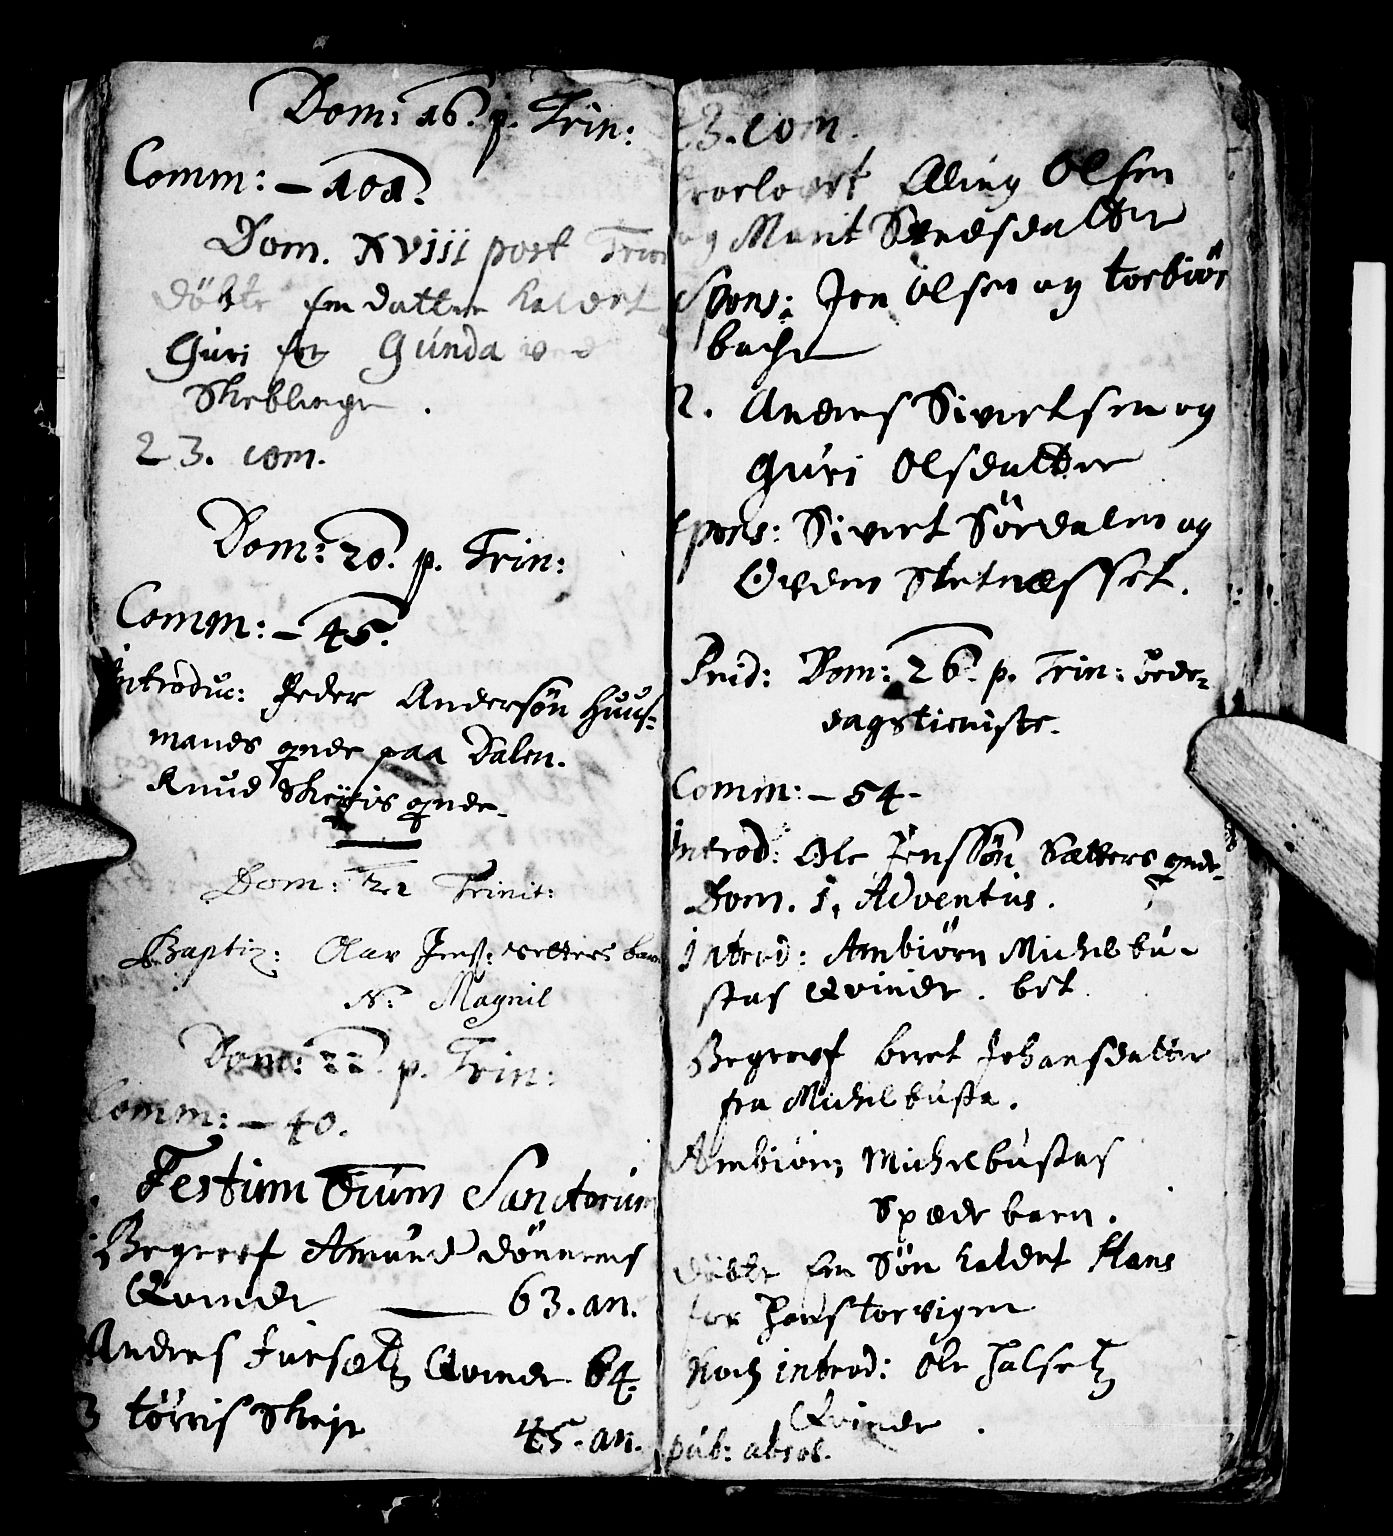 Dom: 16. p. Trin:
Comm: – 101.
Dom. XVIII post Trin
döbte en datter kaldet
Guri for Gunda
Skeblinge.
23. com.
Dom: 20. p. Trin:
Comm: – 45.
Introduc: Peder Andersøn Huus-
mands qnde paa Dalen.
Knud Skeyis qnde.
Dom: 21 Trinit:
Baptiz: Olav Jenss: setters barn
N. Magnil
Dom: 22. p. Trin:
Comm: – 40.
Festum Oium Sanctorum
Begrof Amund dönnems
Qvinde — 63. an.
Anders Fursætz Qvinde 64.
3 törris Skeje 45. an.
23. com.
troelovet Elling Olsen
og Marit Svedsdatter
Spons: Jon Olsen og torbiör
bache
2. Anders Sivertsen og
Guri Olsdatter
spons: Sivert Sördalen og
Eivem Stetnæsset.
Prid: Dom: 26. p. Trin: bede-
dagstieniste.
Comm: – 54 -
Introd: Ole Jenssøn Sætters qnde.
Dom. 1. Adventus.
Introd: Ambiörn Michelbu-
stas Qvinde. bet
Begrovf beret Johansdatter
fra Michelbusta.
Ambiörn Michelbustas
Spæde barn.
döbte en Sön kaldet Hans
for Hans torvigen
Noch introd: Ole Halsetz
Qvinde.
pub: absol.